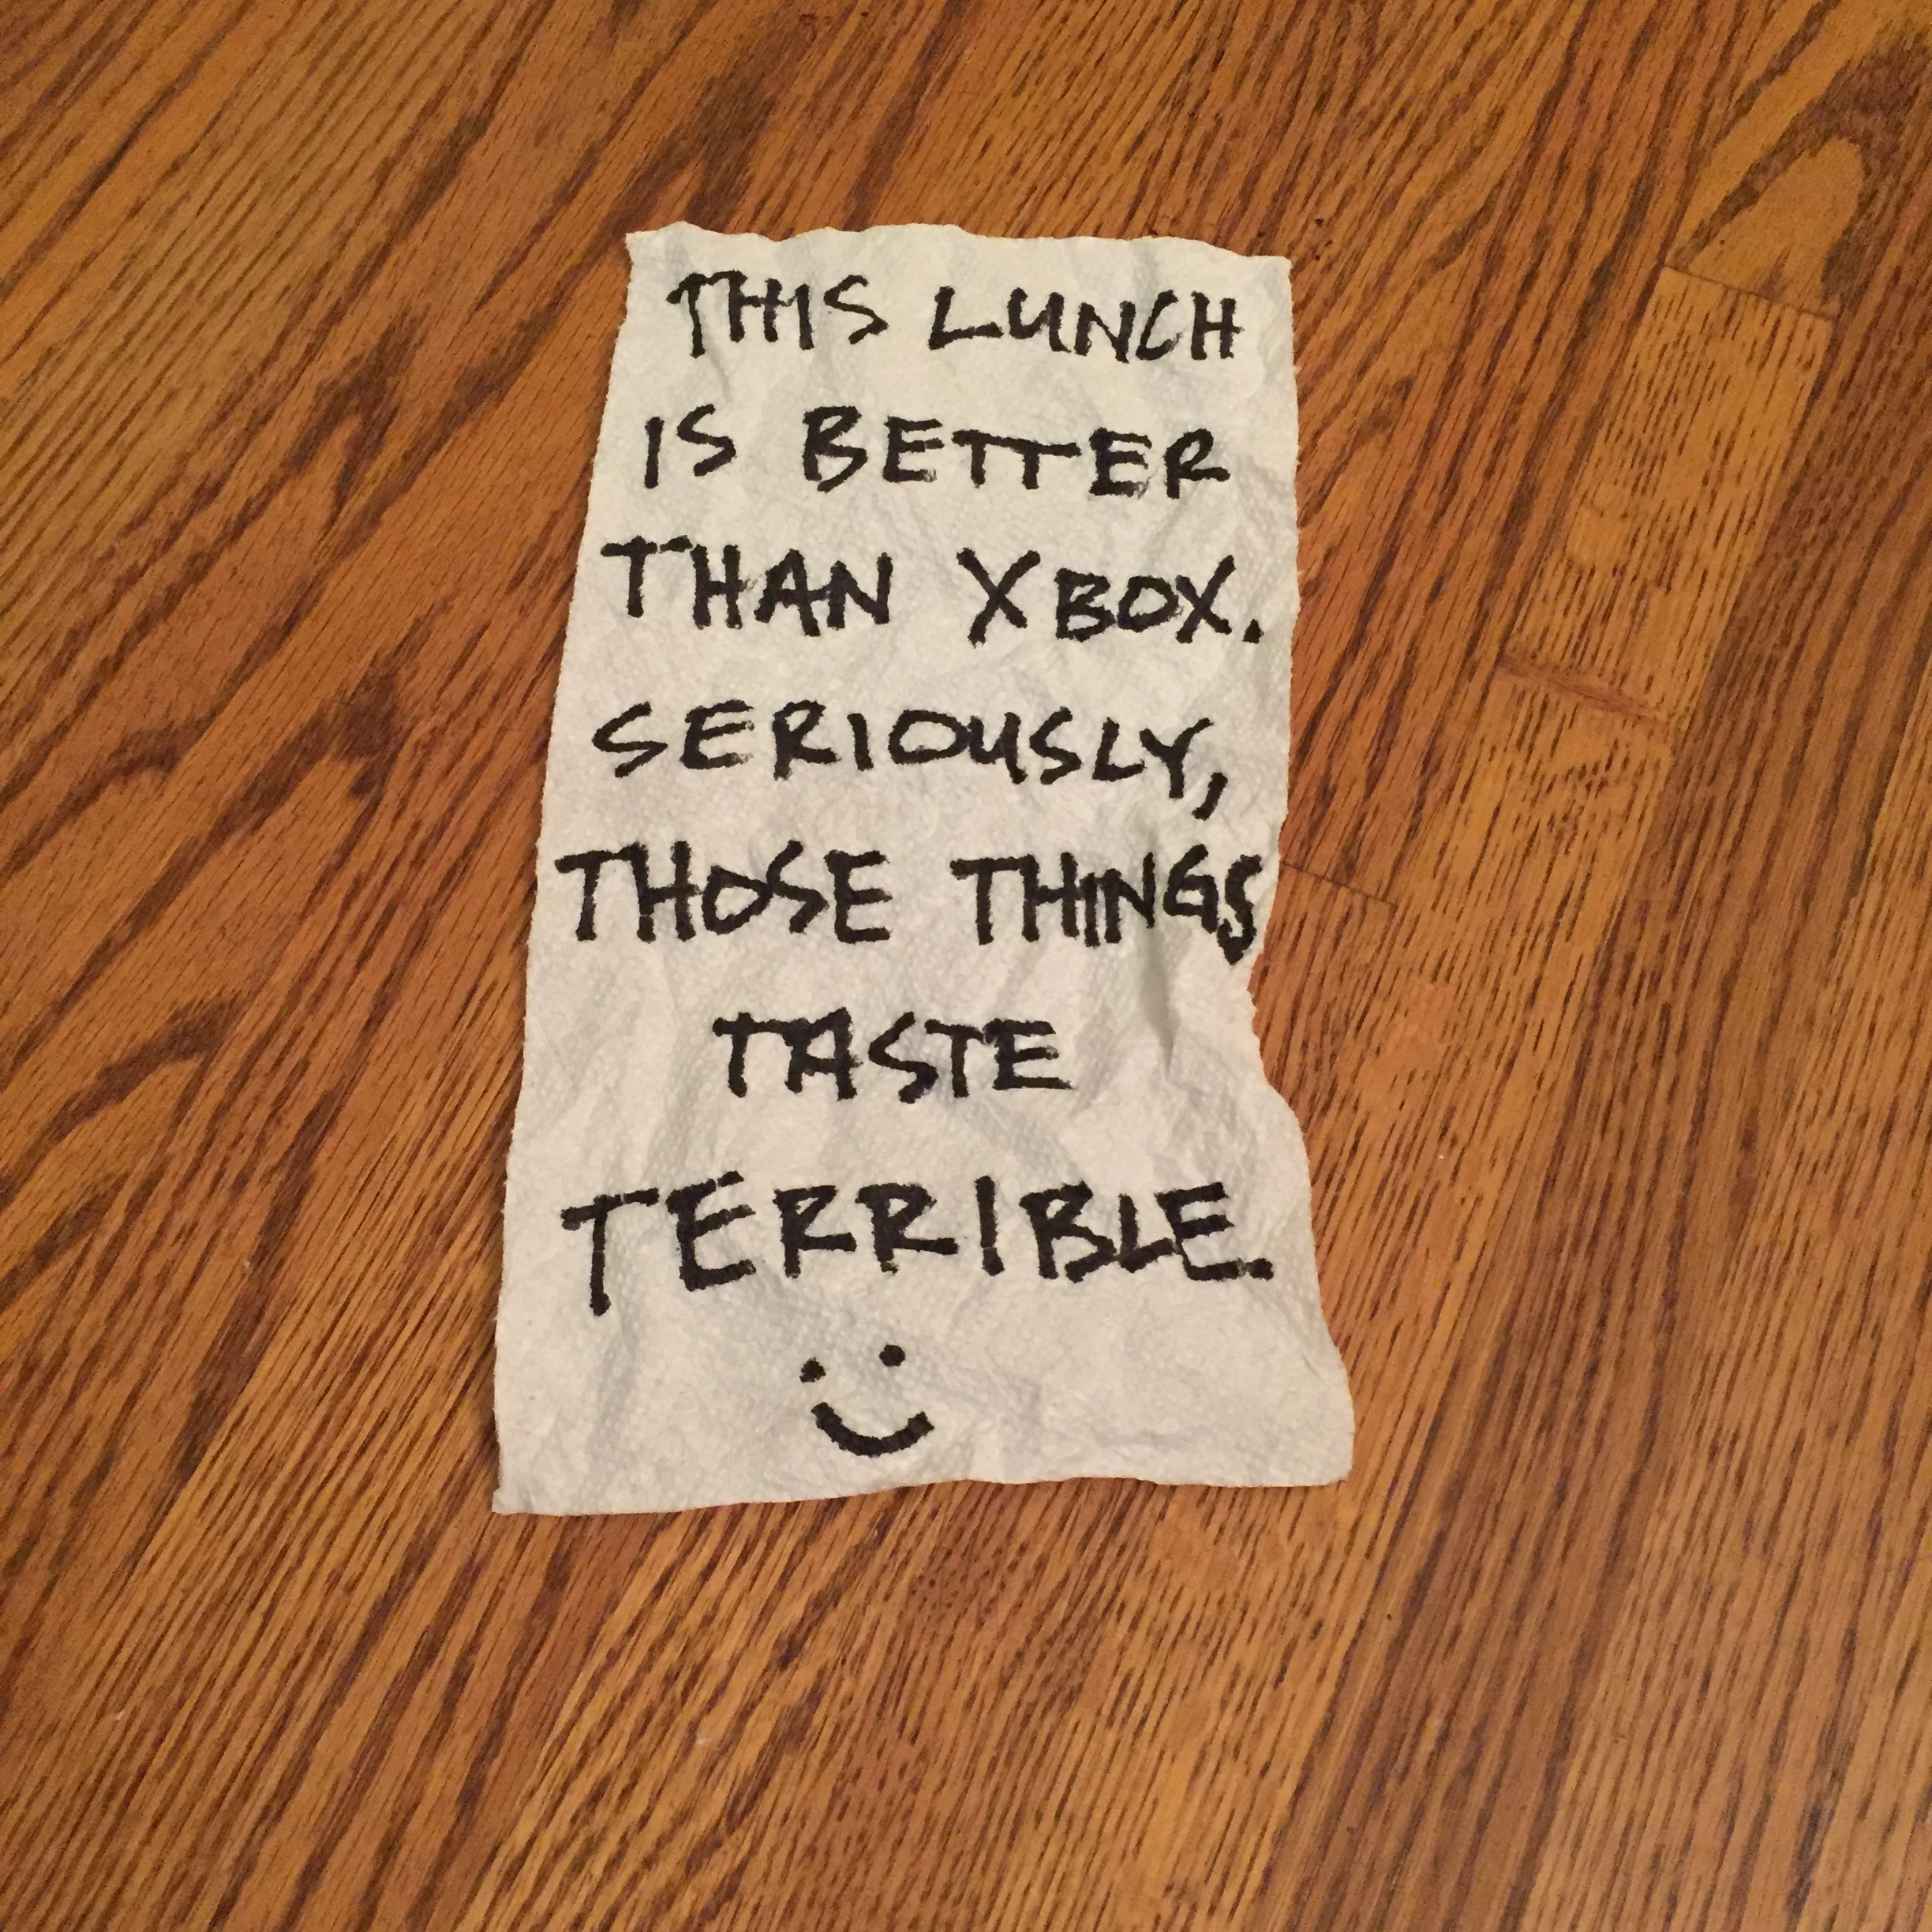 THIS LUNCH
IS BETTER
THAN XBOX.
SERIOUSLY,
THOSE THINGS
TASTE
TERRIBLE.